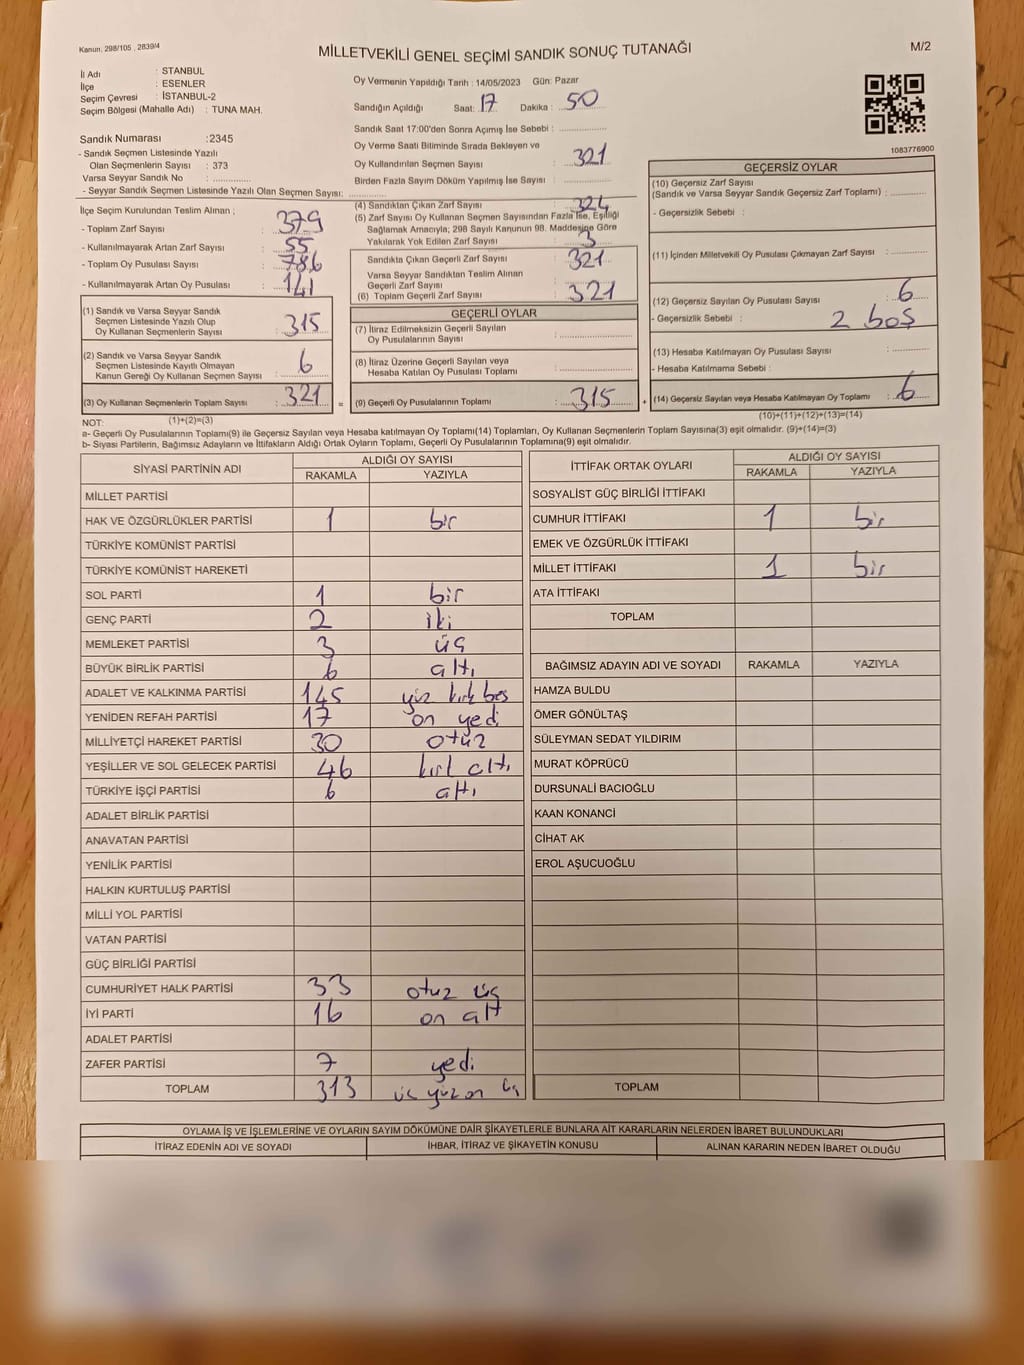 Kanun, 298/105 , 2839/4
MİLLETVEKİLİ GENEL SEÇİMİ SANDIK SONUÇ TUTANAĞI
M/2
İl Adı : STANBUL
İlçe : ESENLER
Seçim Çevresi : İSTANBUL-2
Seçim Bölgesi (Mahalle Adı) : TUNA MAH.
Oy Vermenin Yapıldığı Tarih : 14/05/2023 Gün: Pazar
Sandığın Açıldığı Saat: 17 Dakika : 50
Sandık Saat 17:00'den Sonra Açımış İse Sebebi : ..............
Oy Verme Saati Bitiminde Sırada Bekleyen ve
Oy Kullandırılan Seçmen Sayısı : 321
Birden Fazla Sayım Döküm Yapılmış İse Sayısı : ..............
1083776900
Sandık Numarası :2345
- Sandık Seçmen Listesinde Yazılı
Olan Seçmenlerin Sayısı : 373
Varsa Seyyar Sandık No : ..............
- Seyyar Sandık Seçmen Listesinde Yazılı Olan Seçmen Sayısı: ..............
İlçe Seçim Kurulundan Teslim Alınan ;
- Toplam Zarf Sayısı : 379
- Kullanılmayarak Artan Zarf Sayısı : 55
- Toplam Oy Pusulası Sayısı : 786
- Kullanılmayarak Artan Oy Pusulası : 141
(1) Sandık ve Varsa Seyyar Sandık
Seçmen Listesinde Yazılı Olup
Oy Kullanan Seçmenlerin Sayısı : 315
(2) Sandık ve Varsa Seyyar Sandık
Seçmen Listesinde Kayıtlı Olmayan
Kanun Gereği Oy Kullanan Seçmen Sayısı : 6
(3) Oy Kullanan Seçmenlerin Toplam Sayısı : 321
(1)+(2)=(3)
(4) Sandıktan Çıkan Zarf Sayısı : 324
(5) Zarf Sayısı Oy Kullanan Seçmen Sayısından Fazla İse, Eşitliği
Sağlamak Amacıyla; 298 Sayılı Kanunun 98. Maddesine Göre
Yakılarak Yok Edilen Zarf Sayısı : 3
Sandıkta Çıkan Geçerli Zarf Sayısı : 321
Varsa Seyyar Sandıktan Teslim Alınan
Geçerli Zarf Sayısı :
(6) Toplam Geçerli Zarf Sayısı : 321
GEÇERLİ OYLAR
(7) İtiraz Edilmeksizin Geçerli Sayılan
Oy Pusulalarının Sayısı : ..............
(8) İtiraz Üzerine Geçerli Sayılan veya
Hesaba Katılan Oy Pusulası Toplamı : ..............
= (9) Geçerli Oy Pusulalarının Toplamı : 315 +
GEÇERSİZ OYLAR
(10) Geçersiz Zarf Sayısı
(Sandık ve Varsa Seyyar Sandık Geçersiz Zarf Toplamı) : ..............
- Geçersizlik Sebebi :
(11) İçinden Milletvekili Oy Pusulası Çıkmayan Zarf Sayısı : ..............
(12) Geçersiz Sayılan Oy Pusulası Sayısı : 6
- Geçersizlik Sebebi : 2 boş
(13) Hesaba Katılmayan Oy Pusulası Sayısı : ..............
- Hesaba Katılmama Sebebi :
(14) Geçersiz Sayılan veya Hesaba Katılmayan Oy Toplamı : 6
(10)+(11)+(12)+(13)=(14)
NOT:
a- Geçerli Oy Pusulalarının Toplamı(9) ile Geçersiz Sayılan veya Hesaba katılmayan Oy Toplamı(14) Toplamları, Oy Kullanan Seçmenlerin Toplam Sayısına(3) eşit olmalıdır. (9)+(14)=(3)
b- Siyasi Partilerin, Bağımsız Adayların ve İttifakların Aldığı Ortak Oyların Toplamı, Geçerli Oy Pusulalarının Toplamına(9) eşit olmalıdır.
SİYASİ PARTİNİN ADI ALDIĞI OY SAYISI
RAKAMLA YAZIYLA
MİLLET PARTİSİ
HAK VE ÖZGÜRLÜKLER PARTİSİ 1 bir
TÜRKİYE KOMÜNİST PARTİSİ
TÜRKİYE KOMÜNİST HAREKETİ
SOL PARTİ 1 bir
GENÇ PARTİ 2 iki
MEMLEKET PARTİSİ 3 üç
BÜYÜK BİRLİK PARTİSİ 6 altı
ADALET VE KALKINMA PARTİSİ 145 yüz kırk beş
YENİDEN REFAH PARTİSİ 17 on yedi
MİLLİYETÇİ HAREKET PARTİSİ 30 otuz
YEŞİLLER VE SOL GELECEK PARTİSİ 46 kırk altı
TÜRKİYE İŞÇİ PARTİSİ 6 altı
ADALET BİRLİK PARTİSİ
ANAVATAN PARTİSİ
YENİLİK PARTİSİ
HALKIN KURTULUŞ PARTİSİ
MİLLİ YOL PARTİSİ
VATAN PARTİSİ
GÜÇ BİRLİĞİ PARTİSİ
CUMHURİYET HALK PARTİSİ 33 otuz üç
İYİ PARTİ 16 on altı
ADALET PARTİSİ
ZAFER PARTİSİ 7 yedi
TOPLAM 313 üç yüz on üç
İTTİFAK ORTAK OYLARI ALDIĞI OY SAYISI
RAKAMLA YAZIYLA
SOSYALİST GÜÇ BİRLİĞİ İTTİFAKI
CUMHUR İTTİFAKI 1 bir
EMEK VE ÖZGÜRLÜK İTTİFAKI
MİLLET İTTİFAKI 1 bir
ATA İTTİFAKI
TOPLAM
BAĞIMSIZ ADAYIN ADI VE SOYADI RAKAMLA YAZIYLA
HAMZA BULDU
ÖMER GÖNÜLTAŞ
SÜLEYMAN SEDAT YILDIRIM
MURAT KÖPRÜCÜ
DURSUNALİ BACIOĞLU
KAAN KONANCİ
CİHAT AK
EROL AŞUCUOĞLU
TOPLAM
OYLAMA İŞ VE İŞLEMLERİNE VE OYLARIN SAYIM DÖKÜMÜNE DAİR ŞİKAYETLERLE BUNLARA AİT KARARLARIN NELERDEN İBARET BULUNDUKLARI
İTİRAZ EDENİN ADI VE SOYADI İHBAR, İTİRAZ VE ŞİKAYETİN KONUSU ALINAN KARARIN NEDEN İBARET OLDUĞU